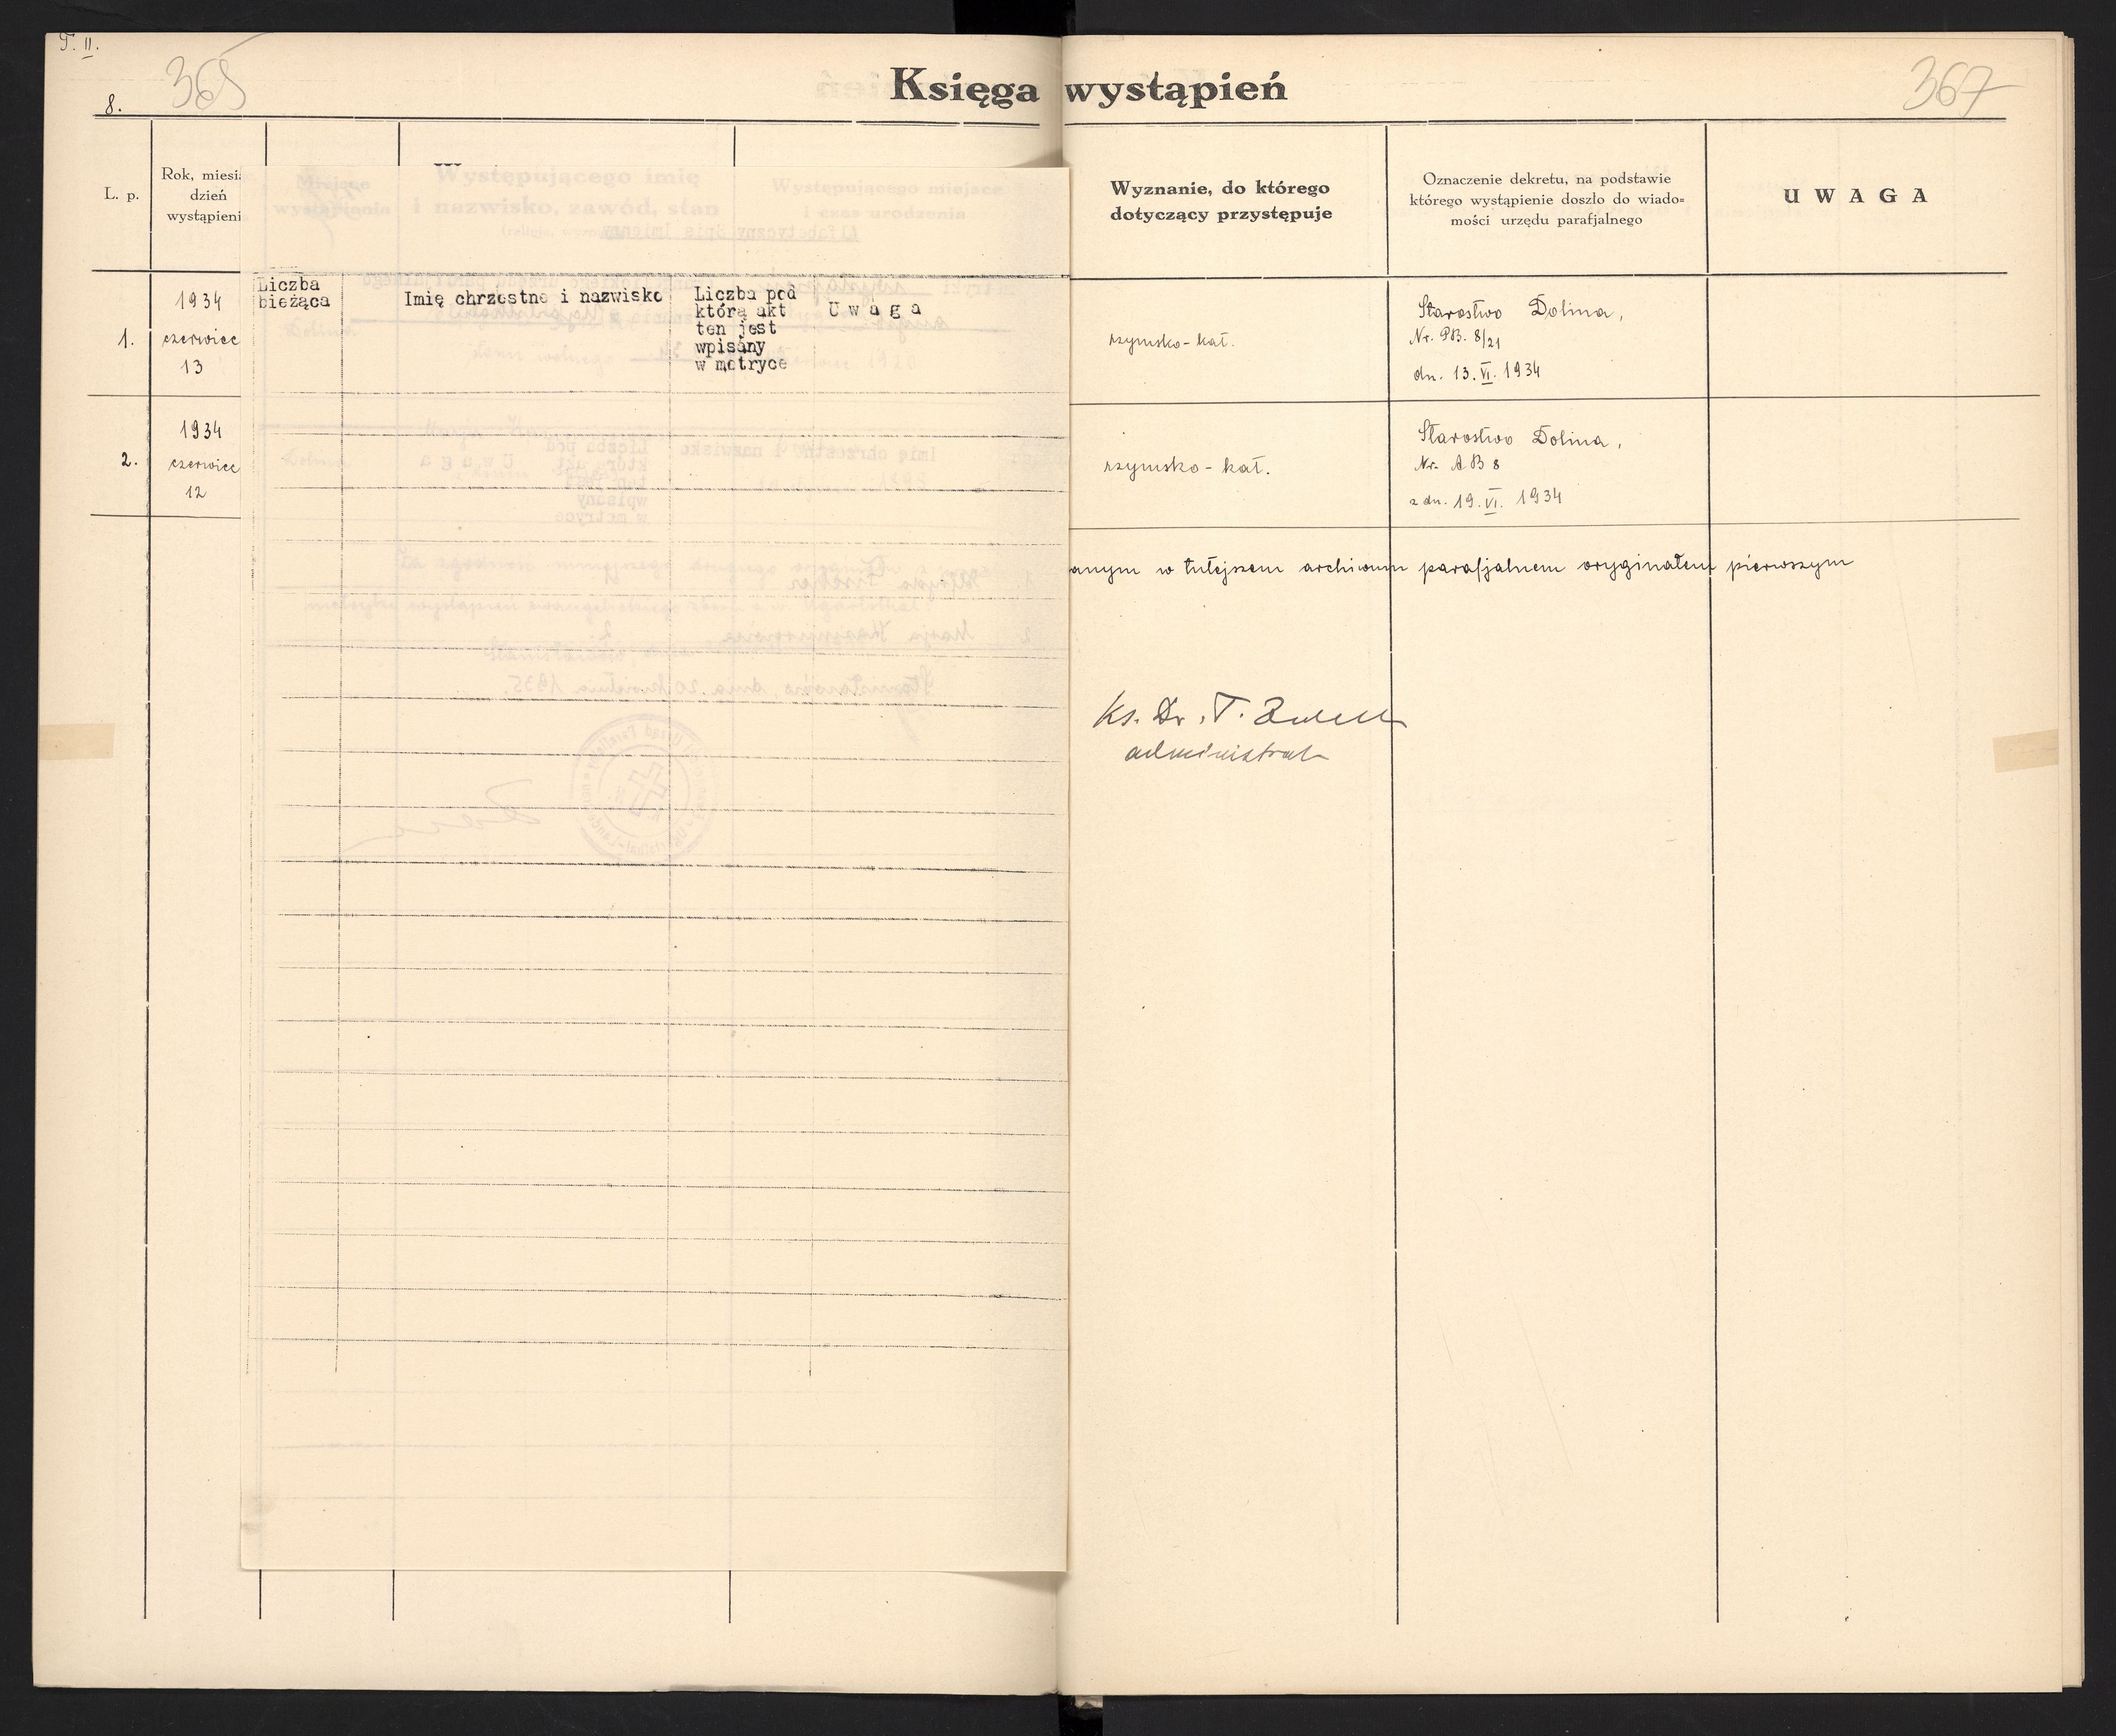 T. II.
365
367
8.
Księga wystąpień
L. p.
Rok, miesią
dzień
wystąpieni
Miejsce
wystąpienia
Występującego imię
i nazwisko, zawód, stan
Występującego miejsce
i czas urodzenia
Wyznanie, do którego
dotyczący przystępuje
Oznaczenie dekretu, na podstawie
którego wystąpienie doszło do wiado=
mości urzędu parafjalnego
UWAGA
Liczba
bieżąca
Imię chrzestne i nazwisko
Liczba pod
którą akt
ten jest
wpisany
w metryce
Uwaga
1.
1934
czerwiec
13
rzymsko-kat.
Starostwo Dolina,
Nr. PB. 8/21
dn. 13. VI. 1934
2.
1934
czerwiec
12
rzymsko-kat.
Starostwo Dolina,
Nr. AB 8
z dn. 19. VI. 1934
anym w tutejszem archiwum parafjalnem oryginałem pierwszym
Ks. Dr. T.
administrat